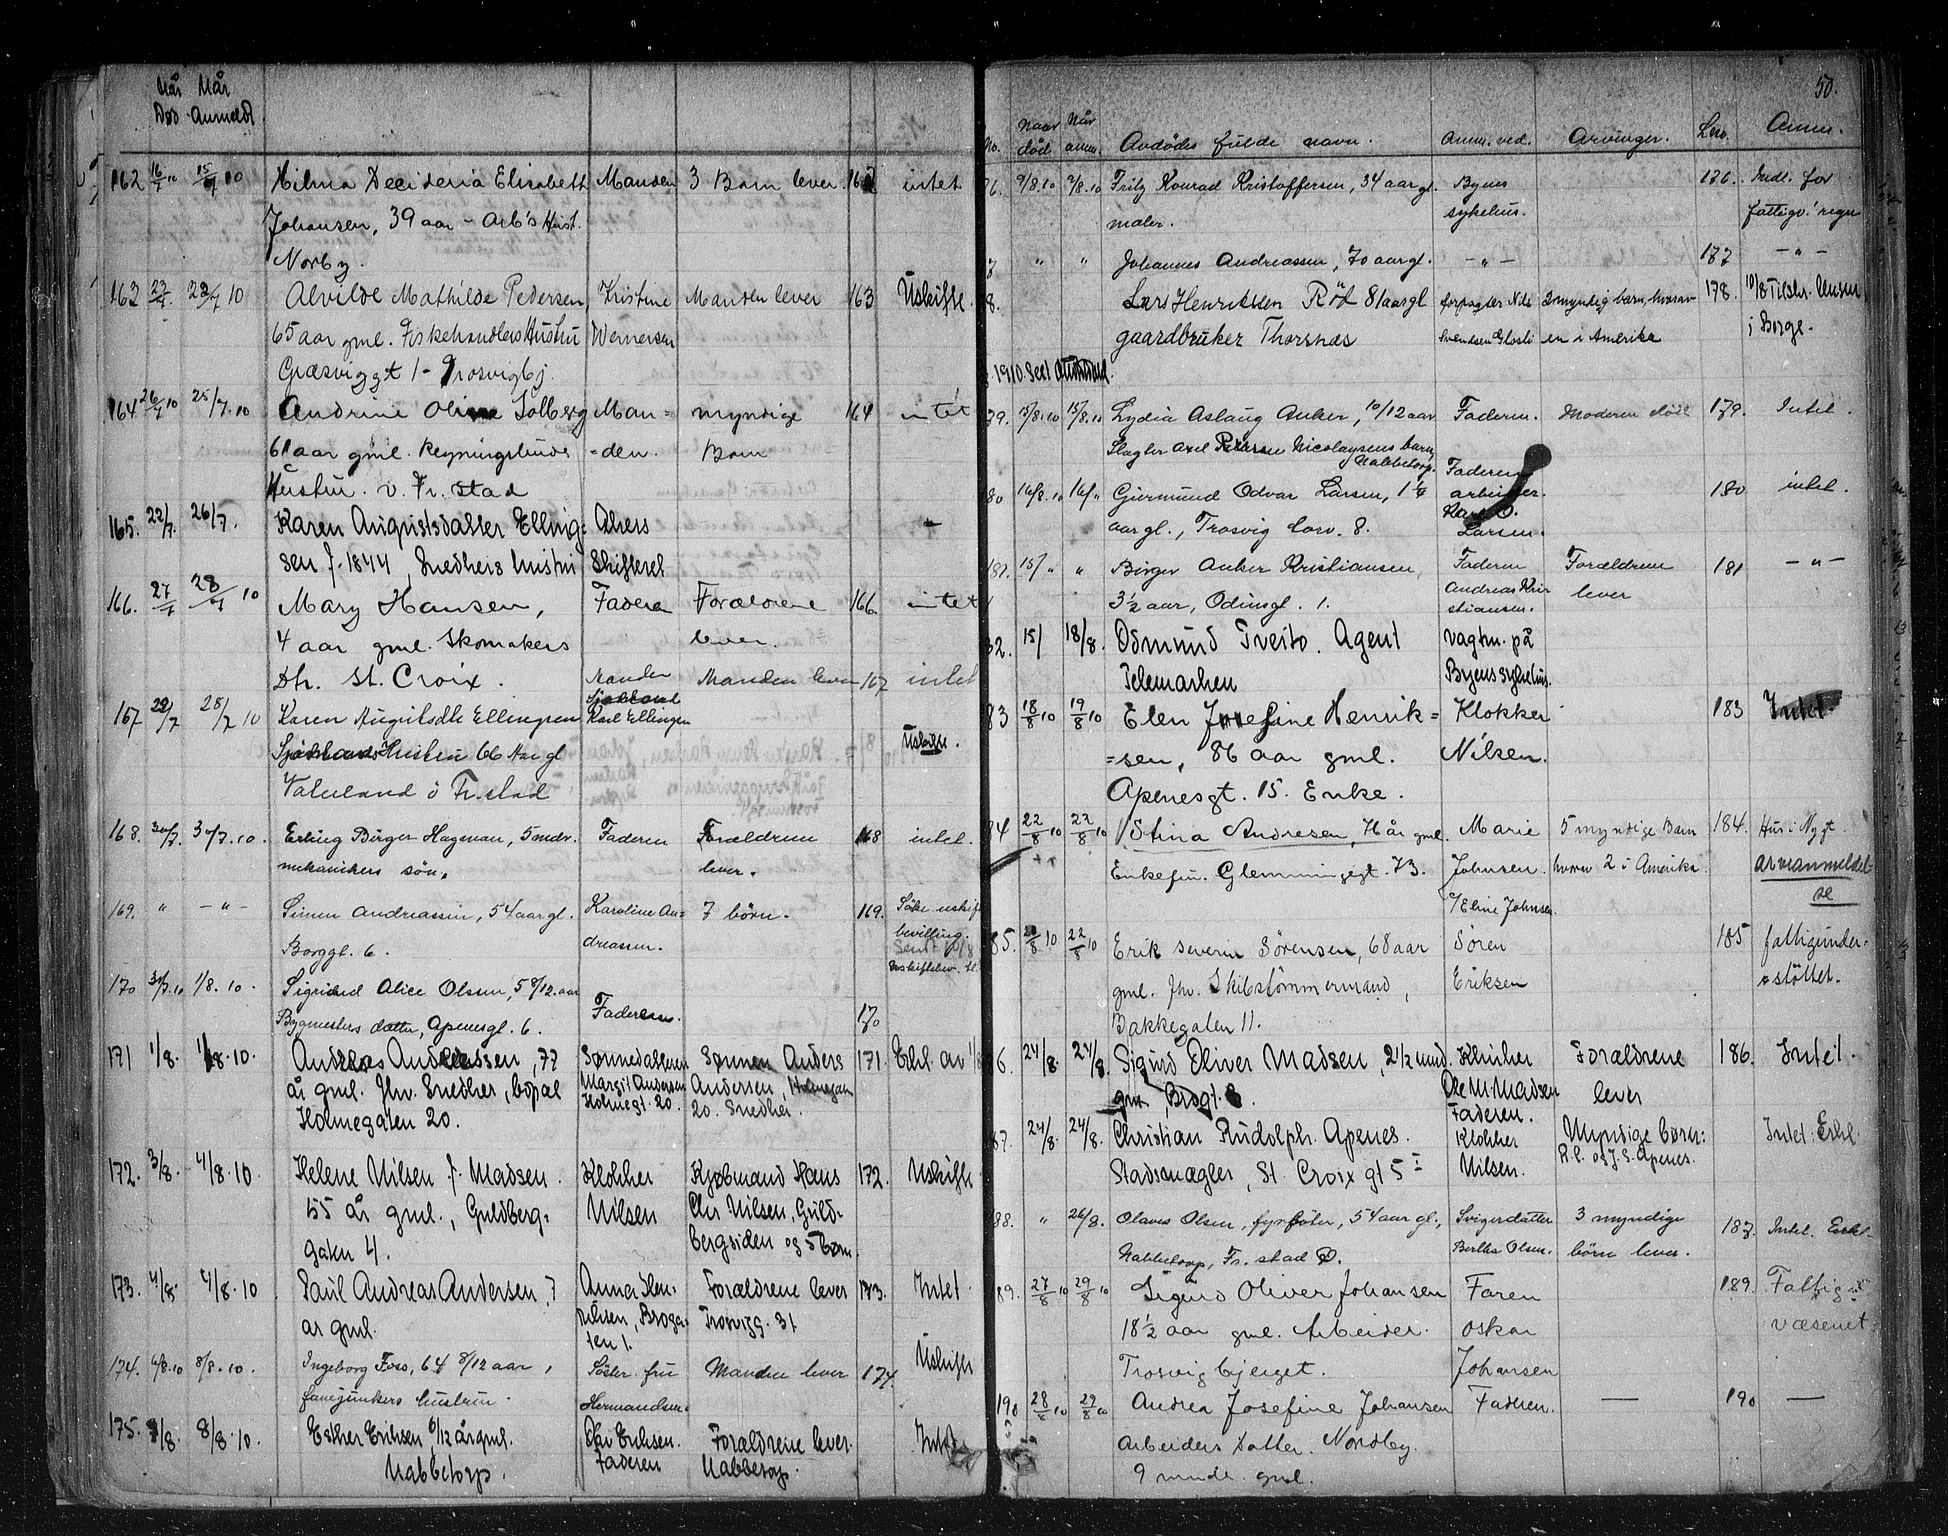 Når Når
Død Anmeldt
162 16/7 10 15/7 10 Hilma Decideria Elisabeth Manden 3 Barn lever 162 intet
Johansen, 39 aar - Arb's Hust.
Norby.
163 23/7. 23/7 10 Alvilde Mathilde Pedersen Kristine Manden lever 163 Uskifte.
65 aar gml. Fiskehandlers Hustru Wernersen
Græsviggt 1 - Trosvigbj.
164 26/7 10 25/7.10 Andrine Oline Solberg Man= myndige 164 intet
61 aar gml. Regningsbuds =den. Barn
Hustru. v. Fr.stad
165. 22/7. 26/7. Karen Augustsdatter Elling= Ahers
sen f. 1844, Snedkers hustru Skifteret
166. 27/7 28/7 10 Mary Hansen, Faderen Forældrene 166 intet
4 aar gml. Skomakers lever.
Dtr. St. Croix.
Manden Manden lever 167 intet
167 22/7 28/7 10 Karen Augustsdtr Ellingsen Karl Ellingsen
Hustru 66 Aar gl Uskifte.
Valeland i Fr.stad
168. 30/7. 30/7.10. Erling Birger Hagman, 5 mdr. Faderen Forældrene 168 intet.
mekanikers søn. lever.
169. " - " - Simen Andreassen, 54 aar gl. Karoline An= 7 børn. 169. Søke uskifte
Borggt. 6. dreassen. bevilling.
Sendt
170 30/7.10 1/8.10. Sigrid Alice Olsen, 5 8/12 aar
Bygmesters datter, Apenesgt. 6. Faderen. 170
171 1/8. 1/8.10. Andreas Andreassen, 77 Sønnedatteren Sønnen Anders 171. Erkl. av
år gml. fhv. Snedker, bopal Margit Andersen Andersen, Holmegaten
Holmegaten 20. Holmegt. 20. 20. Snedker.
172. 3/8. 4/8.10. Helene Nilsen f. Madsen. Klokker Kjøbmand Hans 172. Uskifte
55 år gml., Guldberg= Nilsen Chr Nilsen, Guld=
gaten 4. bergsiden og 5 barn.
173. 4/8. 4/8.10. Paul Andreas Andersen ? Anna Elen. Forældrene lever 173. Intet
år gml. Nilsen, Broga= Trosvigg. 31
ten 1.
174. 6/8.10 8/8.10. Ingeborg Foss, 64 8/12 aar, Søster fru Manden lever 174. Uskifte
fanejunkers hustru. Hermandsen.
175. 8/8. 8/8.10. Esther Eriksen 6/12 år gml. Chr Eriksen. Forældrene lever. Intet
Nabbetorp. Faderen Nabbetorp.
50.
No. Naar død. Når anm. Avdødes fulde navn. Anm. ved. Arvinger. Løse. Anm.
76. 9/8.10 9/8.10 Fritz Konrad Kristoffersen, 34 aar gl. Byens 176. Indl. for
maler. sykehus. fattigv. regn
7 " " Johannes Andreassen, 70 aar gl. - " - 177 - " -
8. Lars Henriksen Röd 81 aar gl forpagter Nils 2 myndig barn, hvorav 178. 10/8 Tilskr. Lensm
gaardbruker Thorsnæs Svendsen Glosli en i Amerika i Borge.
1910.
79. 15/8.10 15/8.10 Lydia Aslaug Anker, 10/12 aar Faderen. Moderen död 179. Intet.
Slagter Axel Nicolaysens barn,
Nabbetorp.
80 16/8.10 16/ " Giermund Odvar Larsen, 1 1/4 Faderen arbeider. 180 intet.
aar gl., Trosvig borv. 8. Karl O. Larsen.
181. 15/ " " Birger Anker Kristiansen, Faderen Forældrene 181 - " -
3 1/2 aar, Odinsgt. 1. Andreas Kri= lever
stiansen.
82. 15/ 18/8. Odmund Tveito. Agent Vagtm. på
Telemarken Byens sykehus.
83 18/8 10 19/8 10 Elen Josefine Henrik= Klokker 183 Intet.
=sen, 86 aar gml. Nilsen.
Apenesgt. 15. Enke.
84 22/8 10 22/8 10 Stina Andresen, 71 år gml. Marie 5 myndige Barn 184. Hus i Nygt.
Enkefru. Glemmingegt. 73. Johnsen. hvorav 2 i Amerika. arveanmeldel
se
v/ Eline Johnsen.
85. 20/8 10 22/8 10 Erik Severin Sörensen, 68 aar Sören 185 fattigunder=
gml. fhv. Skibstömmermand, Eriksen støttet.
Bakkegaten 11.
86. 24/8. 24/8. Sigurd Oliver Madsen, 2 1/2 mnd. Klinker Forældrene 186. Intet.
gml, Brogt. 8. Ole M. Madsen lever
Faderen.
87. 24/8. 24/8. Christian Rudolph Apenes. Klokker Myndige børn: Intet. Erkl.
Stadsmægler, St. Croix gt 5 I Nilsen. R.C. og J.S. Apenes.
88. " 26/8. Olaves Olsen, fyrbøter, 54 aar gl., Svigerdatter 3 myndige 187. Intet. Erkl.
Nabbetorp, Fr.stad Bertha Olsen. börn lever.
89. 27/8 10 29/8 10 Sigurd Oliver Johansen Faren 189. Fattig=
18 1/2 aar gml. Arbeider. Oskar væsenet
Trosvigbjerget. Johansen
190 28/8 10 29/8 10 Andrea Josefine Johansen Faderen. — 190 —
Arbeiders Datter. Nordby.
9 mnde gml.